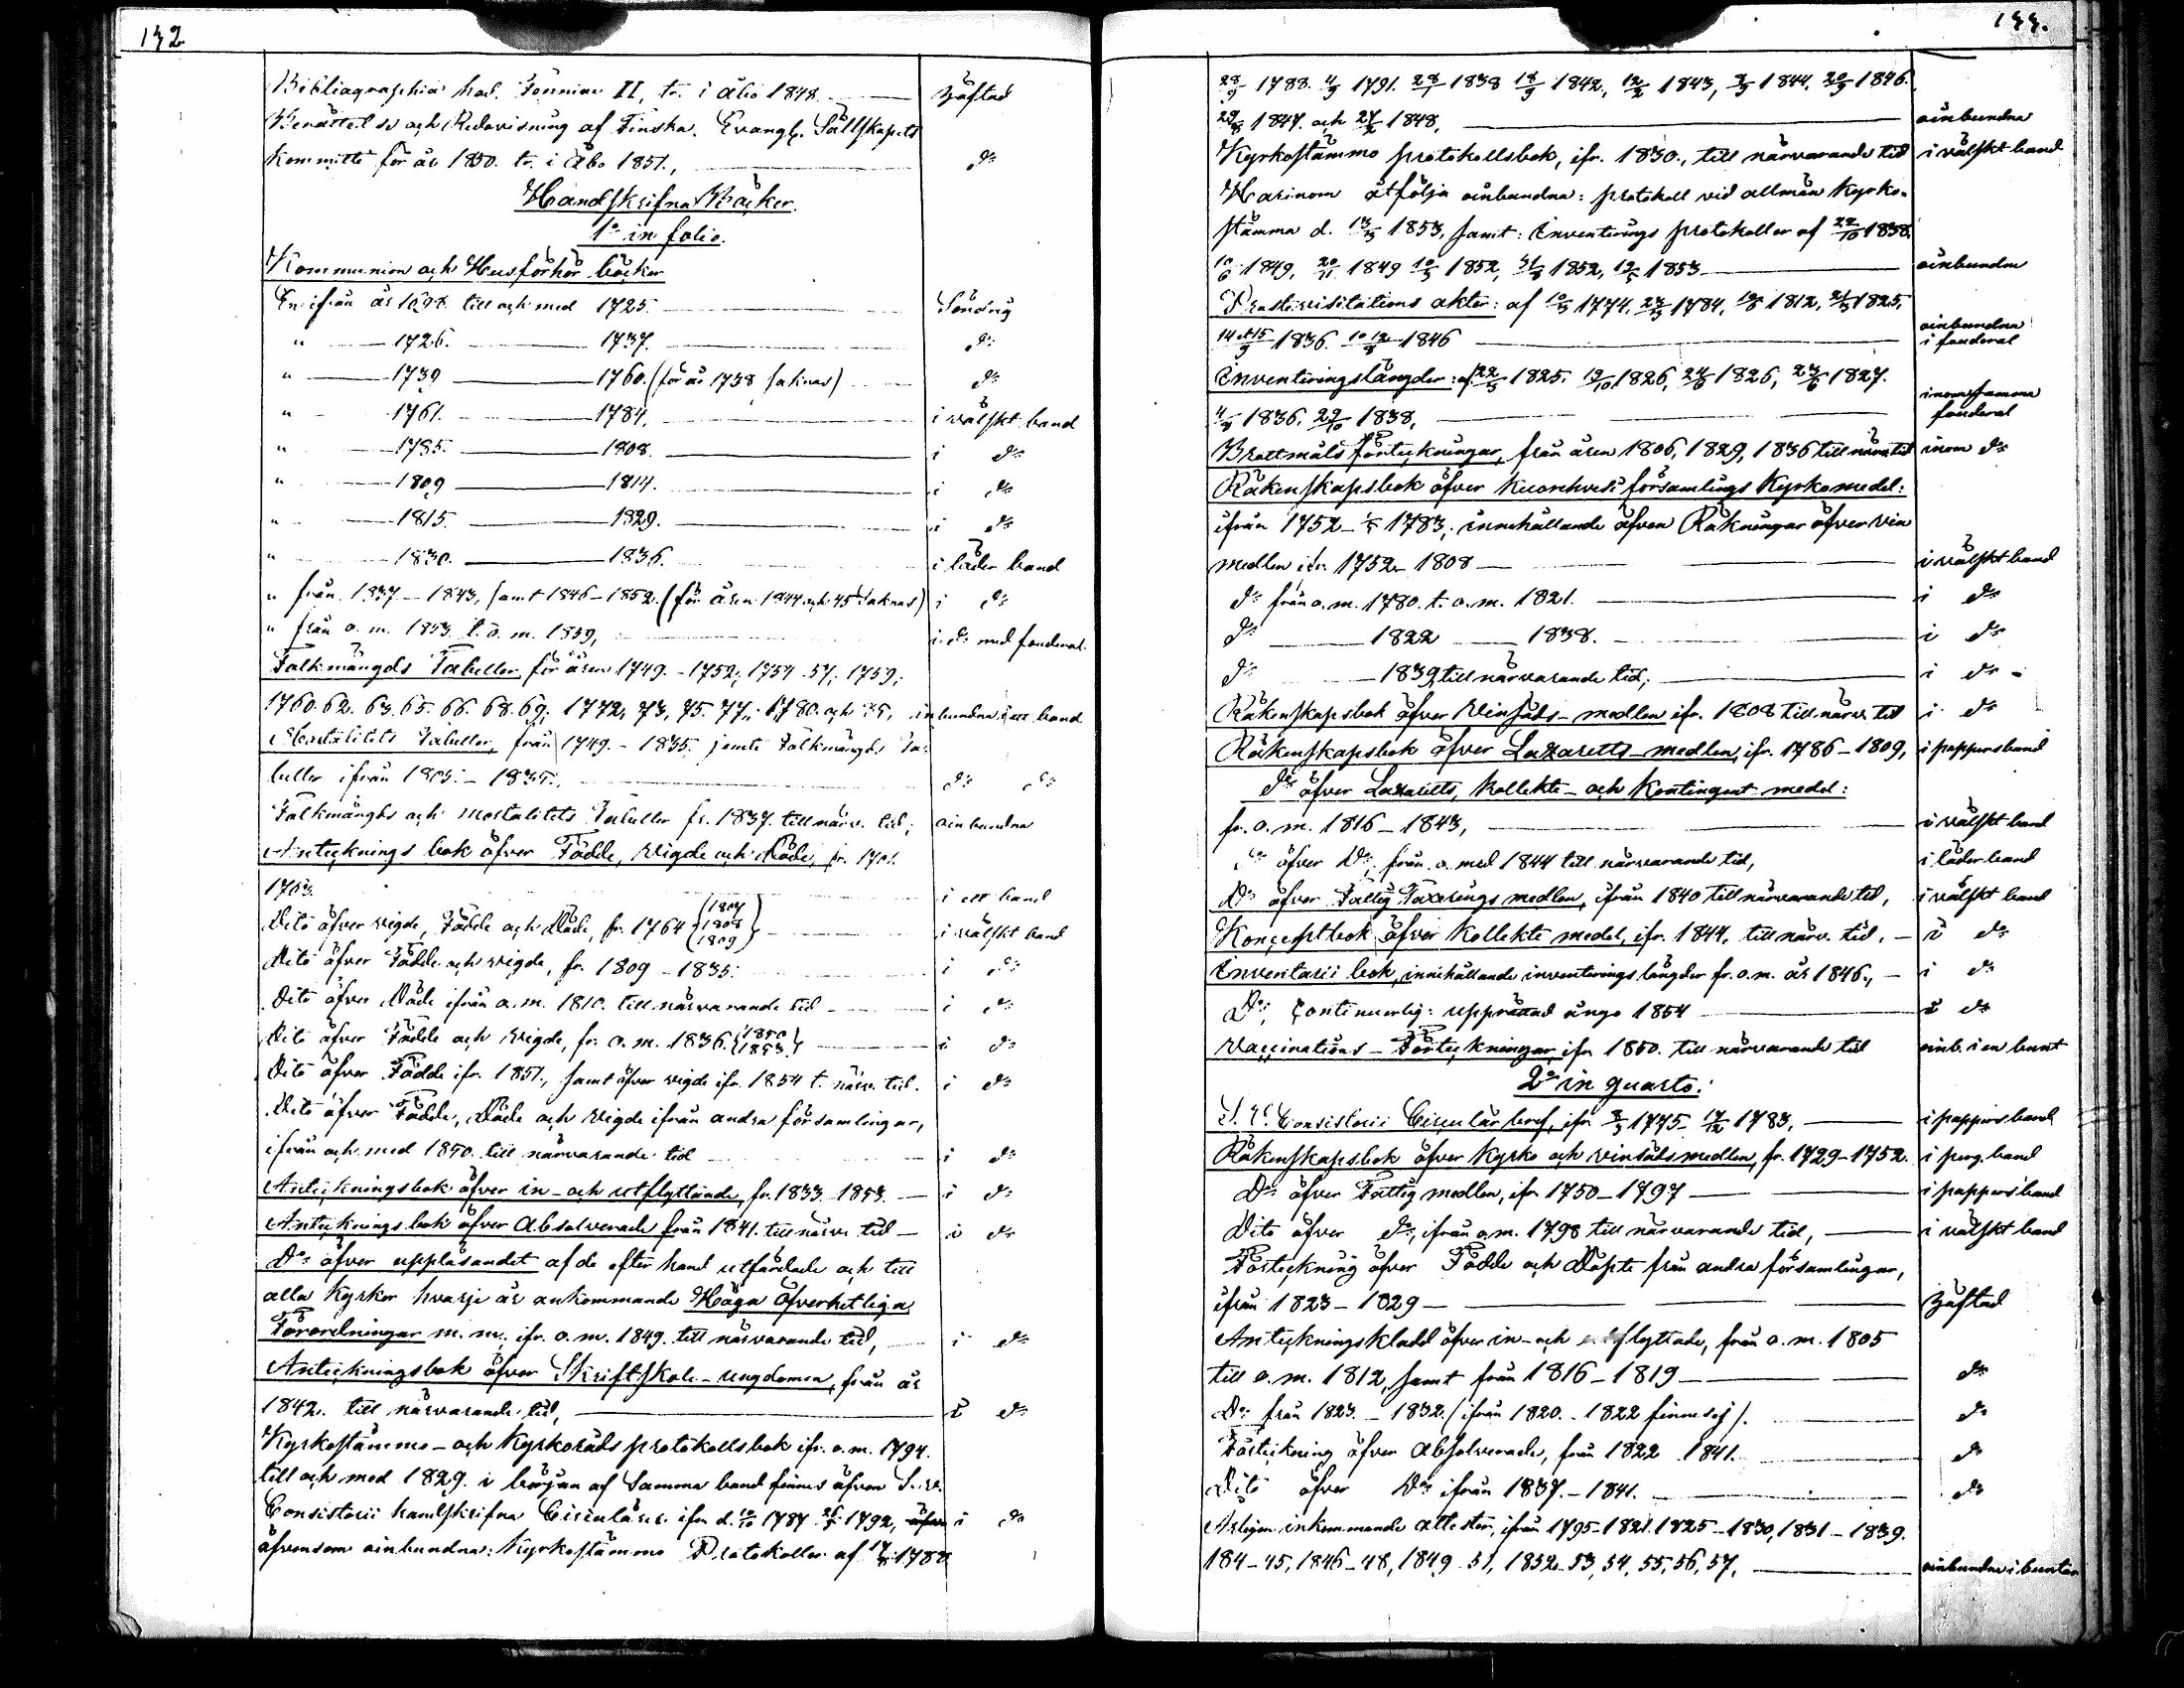 132
Bibliographia hod. Fenniae II, tr. i Åbo 1848 häftad
Berättelse och Redovisning af Finska Evangl. Sällskapets
Kommitté för år 1850. tr. i Åbo 1851., do
Handskrifna Böcker.
1o in folio.
Kommunion och Husförhörs böcker
En ifrån år 1698 till och med 1725. Söndrig
" 1726. 1737. do
" 1739 1760. (för år 1738 saknas) do
" 1761. 1784. i välskt band
" 1785. 1808. i do
" 1809 1814. i do
" 1815. 1829. i do
" 1830. 1836. i läder band
" från 1837 - 1843, samt 1846 - 1852. (för åren 1844 och 45 saknas) i do
" från o. m. 1853 t. o. m. 1859, i do med fouderal.
Folkmängds Tabeller för åren 1749. - 1752; 1754 - 57; 1759;
1760. 62. 63. 65. 66. 68. 69; 1772, 73, 75. 77; 1780. och 85, inbundna i ett band
Mortalitets Tabeller, från 1749. - 1835. jemte Folkmängds Ta-
beller ifrån 1805. - 1835., do do
Folkmängds och mortalitets Tabeller fr. 1837. till närv. tid; oinbundna
Antecknings bok öfver Födde, vigde och Döde, fr. 1701.
1763. i ett band
Dito öfver vigde, Födde och Döde, fr. 1764 {1807 1808 1809} i välskt band
Dito öfver Födde och vigde, fr. 1809 - 1835. i do
Dito öfver Döde ifrån o. m. 1810. till närvarande tid i do
Dito öfver Födde och vigde, fr. o. m. 1836. {1850 1853.} i do
Dito öfver Födde ifr. 1851., samt öfver vigde ifr. 1854 t. närv. tid. i do
Dito öfver Födde, Döde och vigde ifrån andra församlingar,
ifrån och med 1850. till närvarande tid i do
Anteckningsbok öfver in- och utflyttande, fr. 1833 - 1853. i do
Antecknings bok öfver Absolverade från 1841. till närv. tid - i do
Do öfver uppläsandet af de efter hand utfärdade och till
alla Kyrkor hvarje år ankommande Höga Öfverhetliga
Förordningar m. m., ifr. o. m. 1849. till närvarande tid, i do
Anteckningsbok öfver Skriftskole-ungdomen, från år
1842. till närvarande tid, i do
Kyrkostämmo- och Kyrkoråds protokollsbok ifr. o. m. 1794.
till och med 1829. i början af Samma band finnes äfven S. V.
Consistorii handskrifna Circulärer ifr. d. 1787 1792, i do
äfvensom oinbundna: Kyrkostämmo Protokoller af 1788
133.
28/9 1788. 4/9 1791. 28/7 1838 18/9 1842, 12/2 1843, 1844, 20/9 1846.
29/8 1847. och 27/2 1848, oinbundna
Kyrkostämmo protokollsbok, ifr. 1830., till närvarande tid i välskt band
Härinom åtfölja oinbundna: protokoll vid allmän Kyrko-
stämma d. 13/3 1853, samt: Inventerings protokoller af 22/10 1838.
10/6 1849, 20/11 1849 10/3 1852, 1852, 1853 oinbundne
Prosterivisitations akter: af 1774, 1784, 1812, 1825,
14 och 15/9 1836. 1846 oinbundna i fouderal
Inventeringslängder: af 22/5 1825. 19/10 1826, 1826, 1827.
1836. 29/10 1838, inom samma fouderal
Brottmåls Förteckningar, från åren 1806, 1829, 1836 till närv. tid inom do
Räkenskapsbok öfver Kuorehvesi församlings Kyrkomedel:
ifrån 1752 - 1783; innehållande äfven Räkningar öfver vin
medlen ifr. 1752 - 1808 i välskt band
do från o. m. 1780. t. o. m. 1821. i do
do 1822 1838. i do
do 1839 till närvarande tid; i do -
Räkenskapsbok öfver Vinsäds-medlen ifr. 1808 till närv. tid i do
Räkenskapsbok öfver Lazaretts-medlen, ifr. 1786 - 1809, i pappersband
do öfver Lazaretts, Kollekte- och Kontingent medel:
fr. o. m. 1816 - 1843, i välskt band
do öfver Do, från o. med 1844 till närvarande tid, i läder band
Do öfver Fattig Taxerings medlen, ifrån 1840 till närvarande tid, i välskt band
Konceptbok öfver Kollekte medel, ifr. 1844, till närv. tid. - i do
Inventarii bok, innehållande inventerings längder fr. o. m. år 1846., - i do
Do, Continuerlig: upprättad unge 1854 i do
Vaccinations-Förteckningar, ifr. 1850. till närvarande tid oinb. i en bunt
2o in quarto.
S. V. Consistorii Circulär bref, ifr. 1775 - 1783, i pappers band
Räkenskapsbok öfver Kyrko och vinsädsmedlen, fr. 1729 - 1752. i perg. band
Do öfver Fattig medlen, ifr 1750 - 1797 i pappers band
Dito öfver do, ifrån o. m. 1798 till närvarande tid, i välskt band
Förteckning öfver Födde och Döpte från andra församlingar,
ifrån 1823 - 1829 - häftad
Anteckningskladd öfver in- och utflyttade, från o. m. 1805
till o. m. 1812, samt från 1816 - 1819 do
Do från 1823. - 1832. (ifrån 1820. - 1822 finnes ej). do
Förteckning öfver Absolverade, från 1822 1841. do
Dito öfver Do ifrån 1837. - 1841. do
Årligen inkommande attester, ifrån 1795 - 1821. 1825 - 1830, 1831 - 1839.
184 - 45, 1846 - 48, 1849 - 51, 1852 - 53, 54, 55, 56, 57, oinbundna i buntar